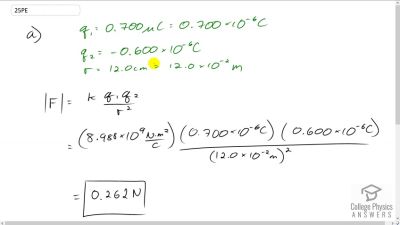 25PE
a) q₁ = 0.700 μC = 0.700 × 10⁻⁶ C
q₂ = -0.600 × 10⁻⁶ C
r = 12.0 cm = 12.0 × 10⁻² m
|F| = k q₁ q₂ / r²
= (8.988 × 10⁹ N·m²/C) (0.700 × 10⁻⁶ C) (0.600 × 10⁻⁶ C) / (12.0 × 10⁻² m)²
= 0.262 N
College Physics
ANSWERS